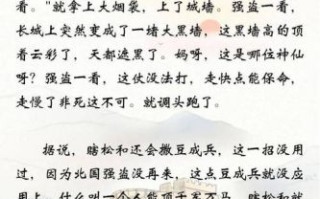 看。"就拿上大烟袋，上了城墙。强盗一看，
长城上突然变成了一堵大黑墙，这黑墙高的顶
着云彩了，天都遮黑了。妈呀，这是哪位神仙
呀？强盗一看，这仗没法打，走快点能保命，
走慢了非死这不可。就调头跑了。
据说，瞎松和还会撒豆成兵，这一招没用
过，因为北国强盗没再来，这点豆成兵就没应
用上。什么叫一个人能顶千军万马，瞎松和就